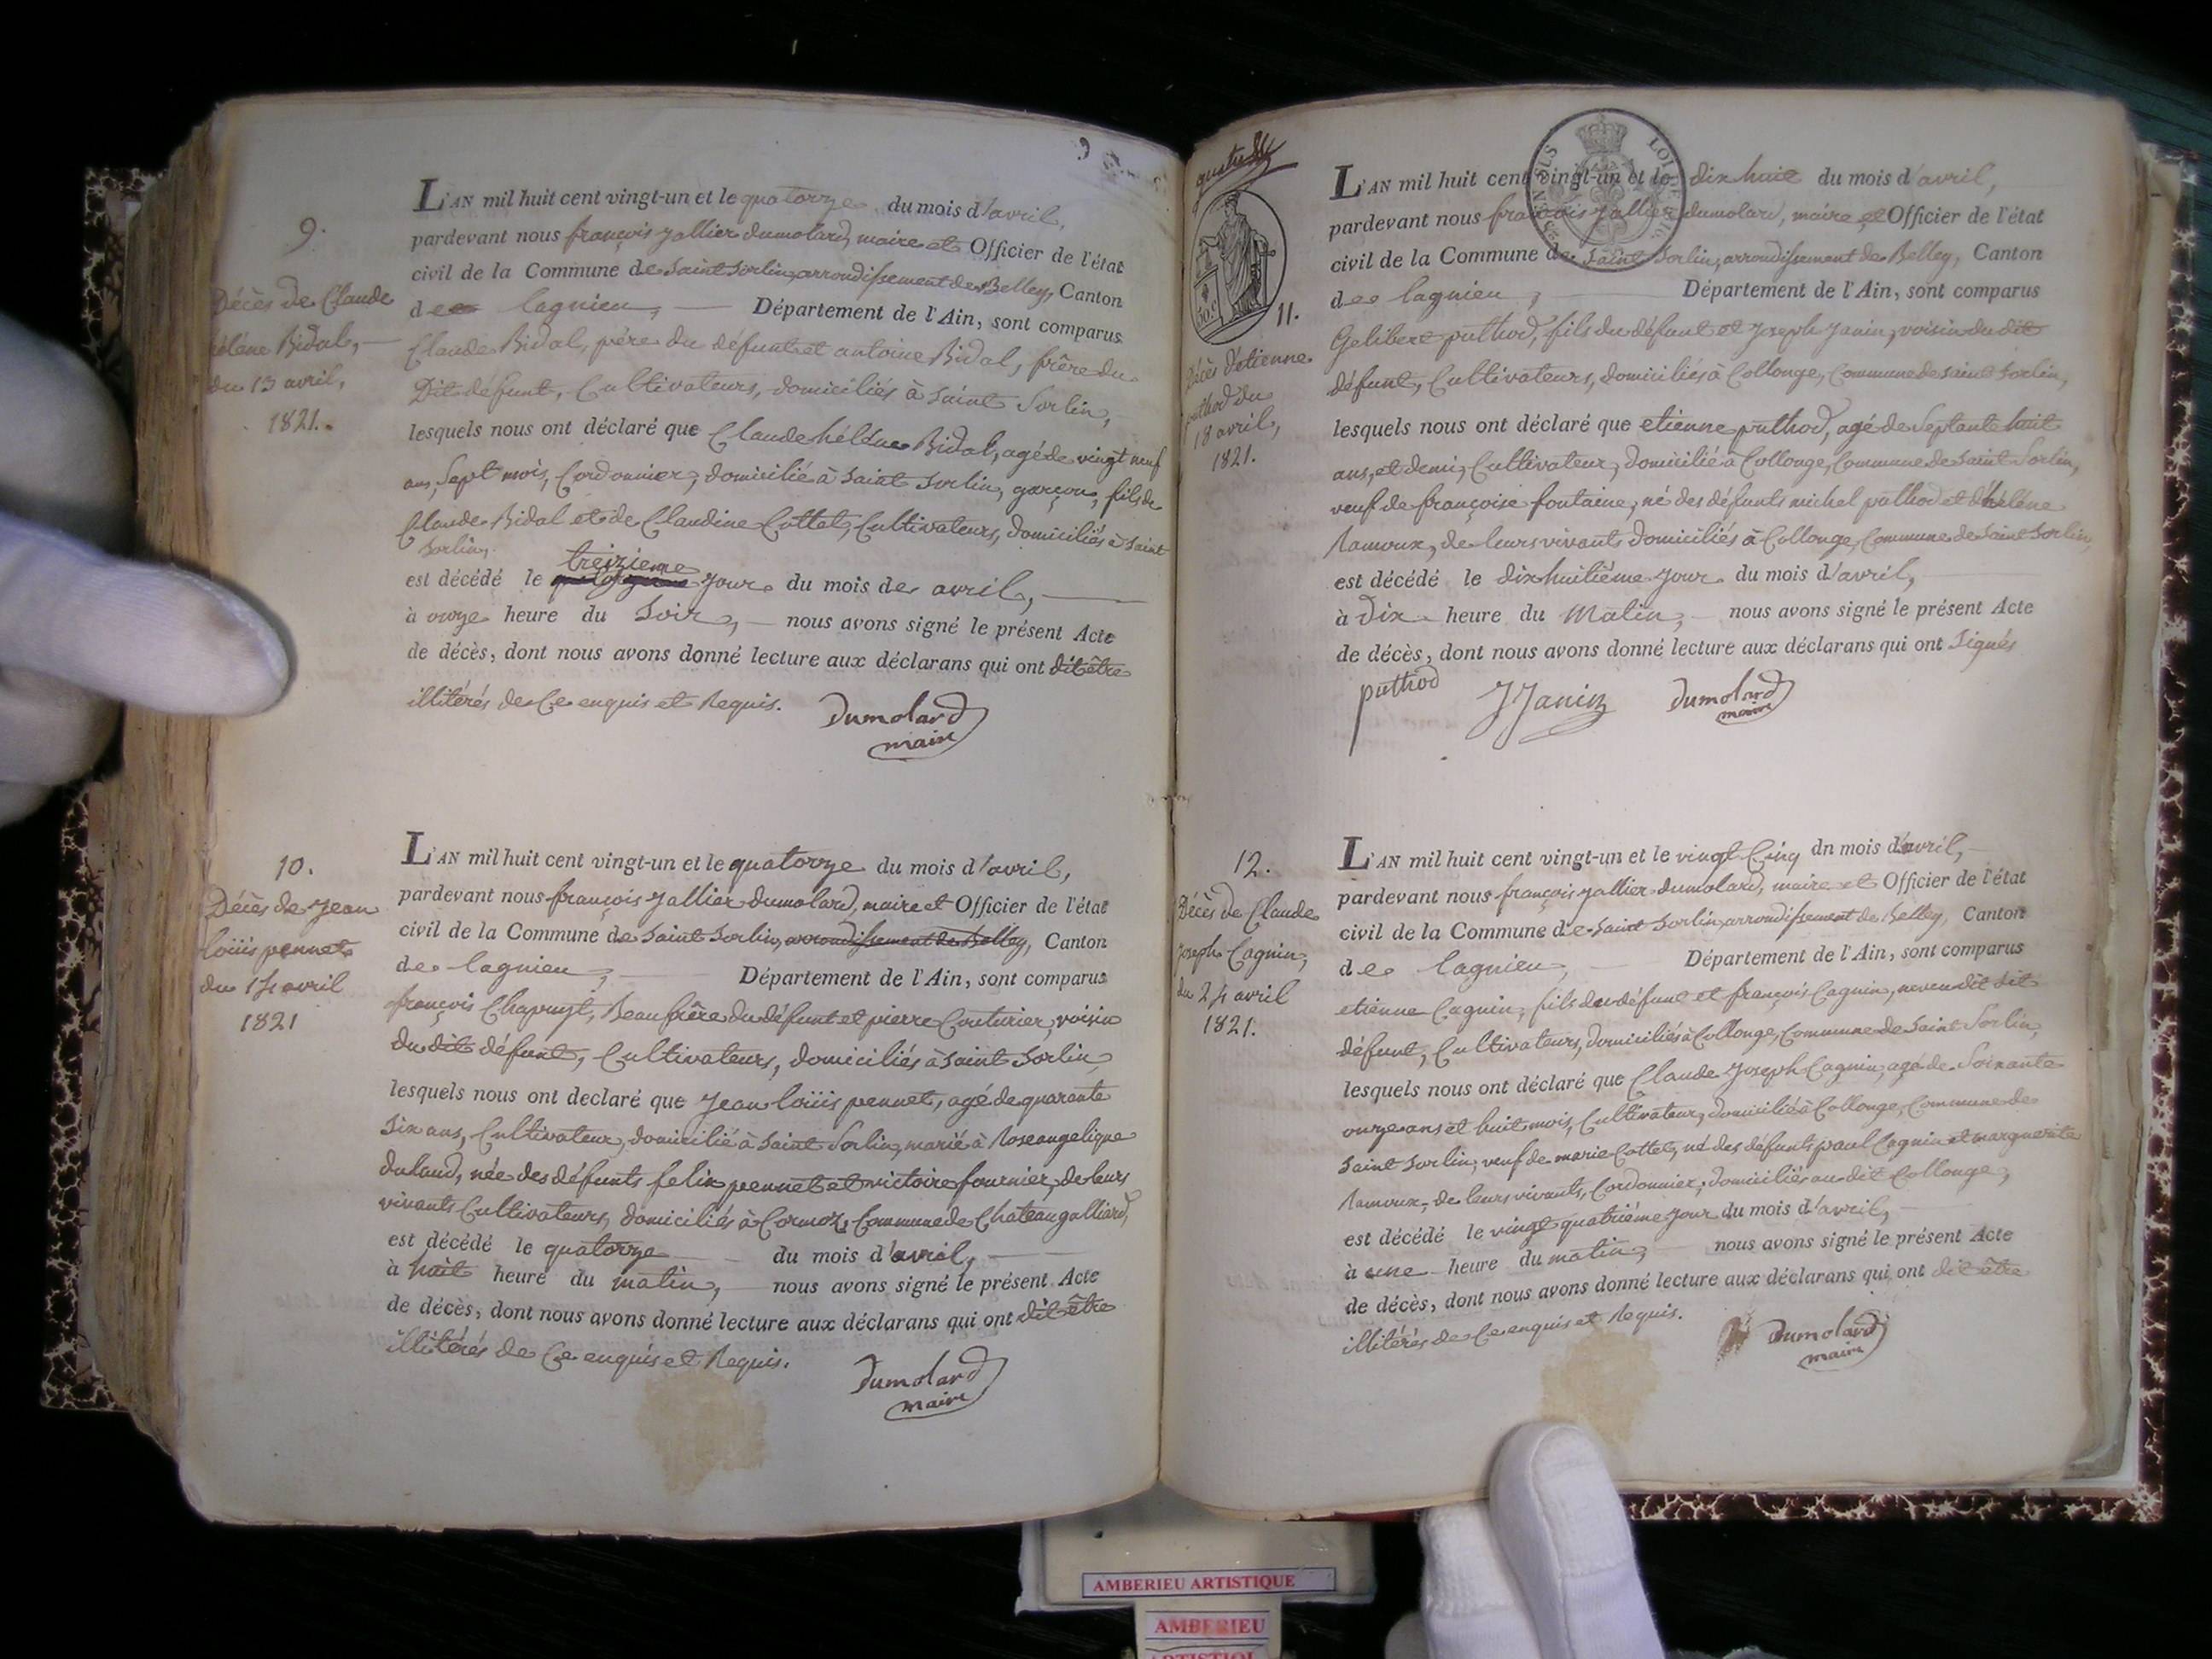 9.
Décès de Claude
hélène Bidal,
du 13 avril,
1821.
L'AN mil huit cent vingt-un et le quatorze du mois d'avril,
pardevant nous françois Jallier dumolard, maire et Officier de l'état
civil de la Commune de Saint Sorlin, arrondissement de Belley, Canton
de lagnieu, Département de l'Ain, sont comparus
Claude Bidal, père du défunt et antoine Bidal, frère du
Dit défunt, Cultivateurs, domiciliés à Saint Sorlin,
lesquels nous ont déclaré que Claude hélène Bidal, agé de vingt neuf
ans, Sept mois, Cordonnier, domicilié à Saint Sorlin, garçon, fils de
Claude Bidal et de Claudine Cottet, Cultivateurs, domiciliés à Saint
Sorlin,
treizieme
est décédé le jour du mois de avril,
à onze heure du Soir, nous avons signé le présent Acte
de décès, dont nous avons donné lecture aux déclarans qui ont dit être
illitérés de Ce enquis et Requis.
Dumolard
maire
10.
Décès de Jean
loüis pennet
du 14 avril
1821
L'AN mil huit cent vingt-un et le quatorze du mois d'avril,
pardevant nous françois Jallier dumolard, maire et Officier de l'état
civil de la Commune de Saint Sorlin, arrondissement de Belley, Canton
de lagnieu, Département de l'Ain, sont comparus
françois Chapuyt, Beaufrère du défunt et pierre Couturier, voisin
du dit défunt, Cultivateurs, domiciliés à Saint Sorlin,
lesquels nous ont declaré que Jean loüis pennet, agé de quarante
Six ans, Cultivateur, domicilié à Saint Sorlin, marié à Rose angelique
duland, née des défunts felix pennet et victoire fournier, de leurs
vivants Cultivateurs, domiciliés à Cormoz, Commune de Chateaugalliard,
est décédé le quatorze du mois d'avril,
à huit heure du matin, nous avons signé le présent Acte
de décès, dont nous avons donné lecture aux déclarans qui ont dit être
illitérés de Ce enquis et Requis.
Dumolard
maire
11.
Décès d'etienne
puthod du
18 avril,
1821.
L'AN mil huit cent vingt-un et le dix huit du mois d'avril,
pardevant nous françois Jallier dumolard, maire et Officier de l'état
civil de la Commune de Saint Sorlin, arrondissement de Belley, Canton
de lagnieu, Département de l'Ain, sont comparus
Gelibert puthod, fils du défunt et Joseph Janin, voisin du dit
défunt, Cultivateurs, domiciliés à Collonge, Commune de Saint Sorlin,
lesquels nous ont déclaré que etienne puthod, agé de Septante huit
ans, et demi, Cultivateur, domicilié à Collonge, Commune de Saint Sorlin,
veuf de françoise fontaine, né des défunts michel puthod et d'hélène
Ramoux, de leurs vivants domiciliés à Collonge, Commune de Saint Sorlin,
est décédé le dix huitième jour du mois d'avril,
à Dix heure du Matin, nous avons signé le présent Acte
de décès, dont nous avons donné lecture aux déclarans qui ont Signés
puthod JJanin Dumolard
maire
12.
Décès de Claude
Joseph Cagnin,
du 24 avril
1821.
L'AN mil huit cent vingt-un et le vingt Cinq dn mois d'avril,
pardevant nous françois Jallier dumolard, maire et Officier de l'état
civil de la Commune de Saint Sorlin, arrondissement de Belley, Canton
de lagnieu, Département de l'Ain, sont comparus
etienne Cagnin, fils du défunt et françois Cagnin, neveu dit dit
défunt, Cultivateurs, domiciliés à Collonge, Commune de Saint Sorlin,
lesquels nous ont déclaré que Claude Joseph Cagnin, agé de Soixante
onze ans et huit mois, Cultivateur, domicilié à Collonge, Commune de
Saint Sorlin, veuf de marie Cottet, né des défunts paul Cagnin et marguerite
Ramoux, de leurs vivants, Cordonnier, domiciliés au dit Collonge,
est décédé le vingt quatrième jour du mois d'avril,
à une heure du matin, nous avons signé le présent Acte
de décès, dont nous avons donné lecture aux déclarans qui ont dit être
illitérés de Ce enquis et Requis.
Dumolard
maire
AMBERIEU ARTISTIQUE
AMBERIEU
ARTISTIQUE